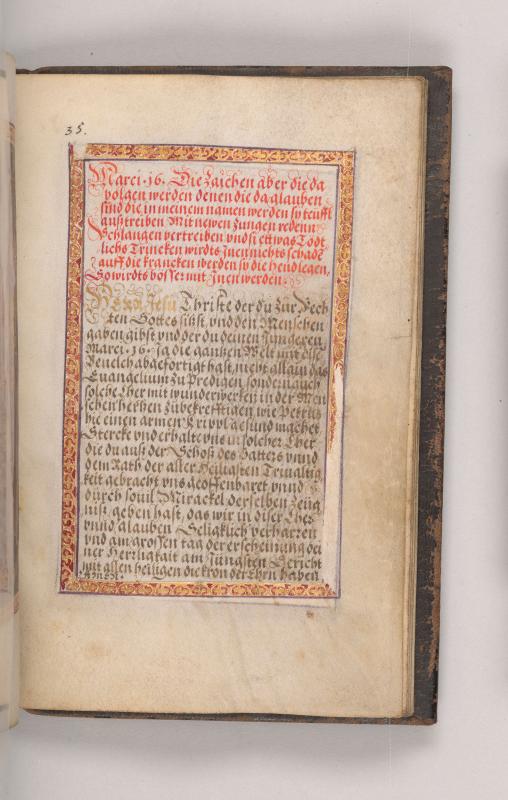 35.
Marci. 16. Die Zaichen aber die da
volgen werden denen die da glauben
sind die in meinem namen werden sy teuffl
außtreiben Mit newen zungen reden
Schlangen vertreiben vnd si ettwas Todt
lichs Trincken wirdts Jnen nichts schadē
auff die krancken werden sy die hend legen,
So wirdts bösser mit Jnen werden.
Herr Jesu Christe der du zur Rech
ten Gottes sitzst, vnd den Menschen
gaben gibst vnd der du deinen Jüngeren
Marci. 16. Ja die gantzen Welt mit dise
Beuelch abgefertigt hast, nicht allain das
Euangelium zu Predigen sonder auch
solche Leher mit wunderwercken in der Men
schen hertzen zübekrefftigen, wie Petrus
hie einen armen Krippl gesund machet
Stercke vnd erhalte vns in solcher Leher
die du auß der Schoß des Vatters vnnd
dem Rath der aller Heiligsten Triualtig
keit gebracht vns geoffenbaret vnnd
durch souil Mirackel derselben zeug
nuß geben hast, das wir in diser Leher
vnnd glauben Seligklich verharren
vnd am grossen tag der erscheinung dei
ner Herrligkait am Jungsten Gericht
mit allen heiligen die kron der Ehrn haben
Amen.